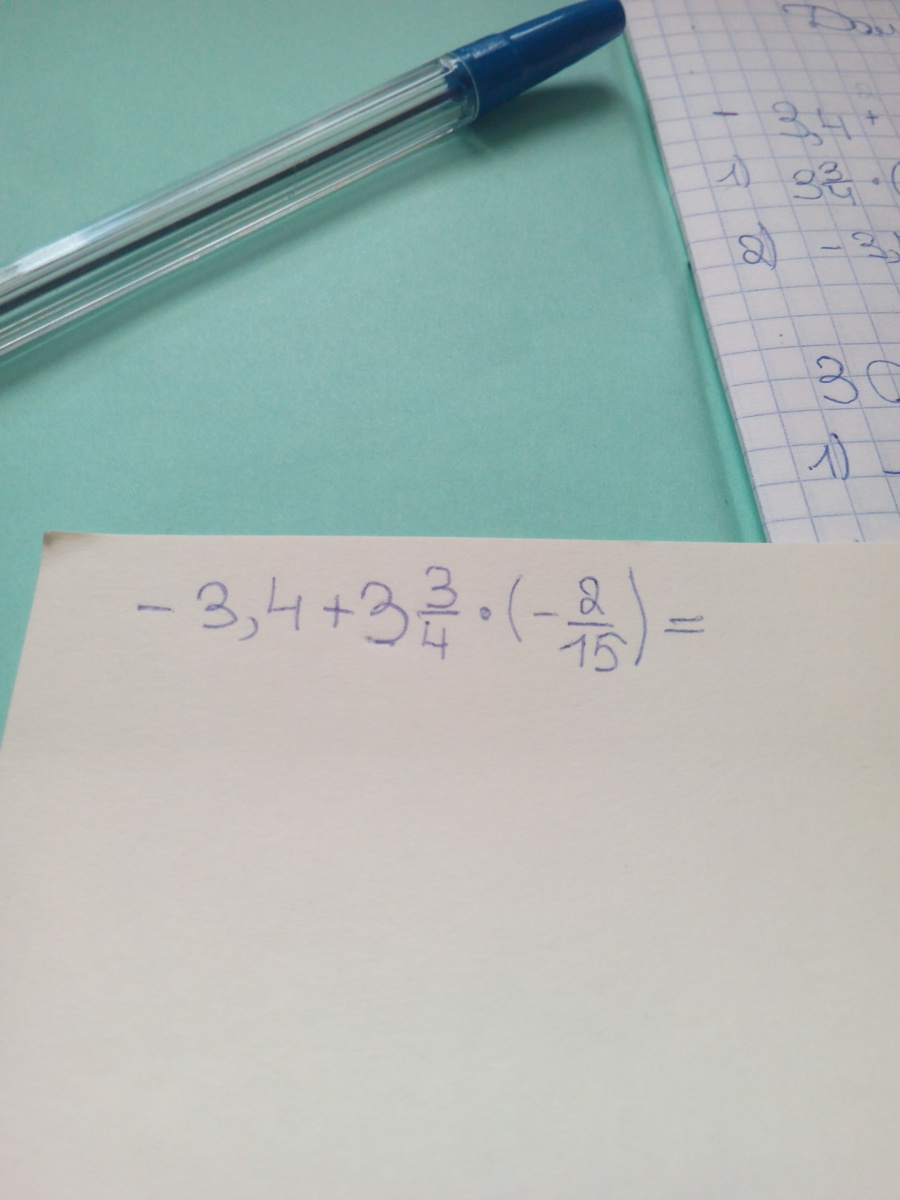 - 3,4 +
1) 3 3/4 · (
2) - 3,
30
1) -
- 3,4 + 3 3/4 · (- 2/15) =